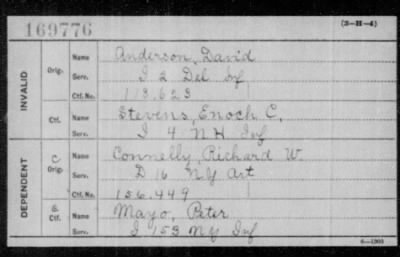 169776
(3-H-4)
INVALID
Orig.
Name Anderson, David
Serv. I 2 Del Inf
Ctf. No. 113.623
Ctf.
Name Stevens, Enoch C.
Serv. I 4 NH Inf
DEPENDENT
C
Orig.
Name Connelly, Richard W.
Serv. D 16 NY Art
Ctf. No. 156.449
Ctf.
Name Mayo, Peter
Serv. I 153 NY Inf
6-1303